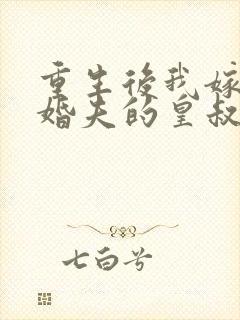 重生後我嫁
婚夫的皇叔
七白兮